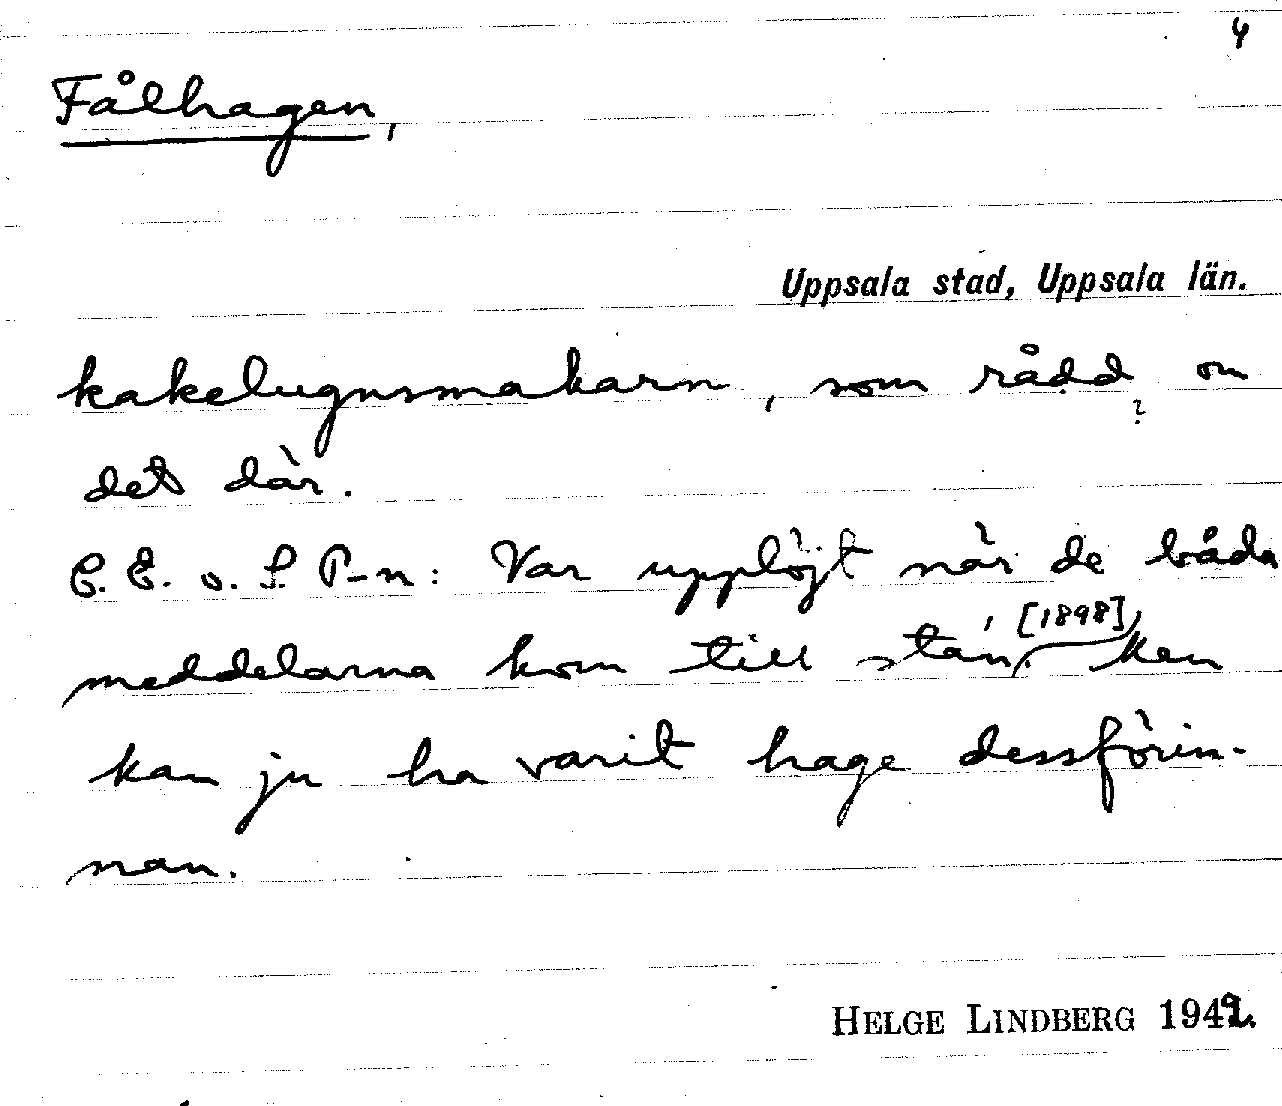 4
Fålhagen,
Uppsala stad, Uppsala län.
kakelugnsmakarn, som rådd om
?
det där.
C. E. o. S. P-n: Var upplöjt när de båda
meddelarna kom till stan, [1898]. Men
kan ju ha varit hage dessförin-
nan.
HELGE LINDBERG 1949.